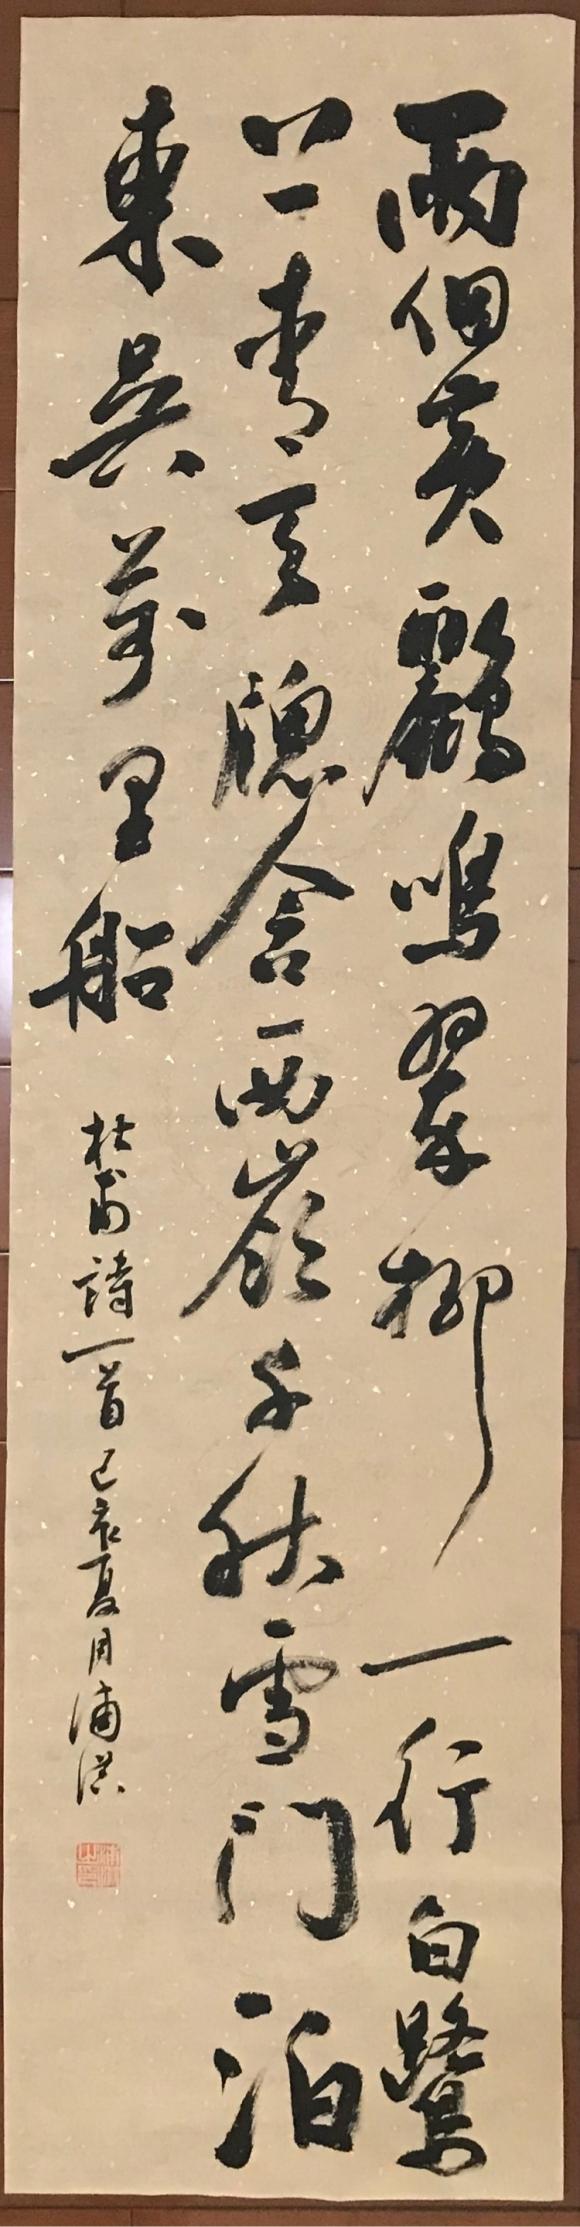 兩個黃鸝鳴翠柳一行白鷺
上青天牕含西嶺千秋雪門泊
東吳萬里船
杜甫詩一首己亥夏月浦洪